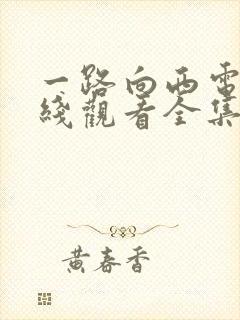 一路向西電
綫觀看全集
黄春香